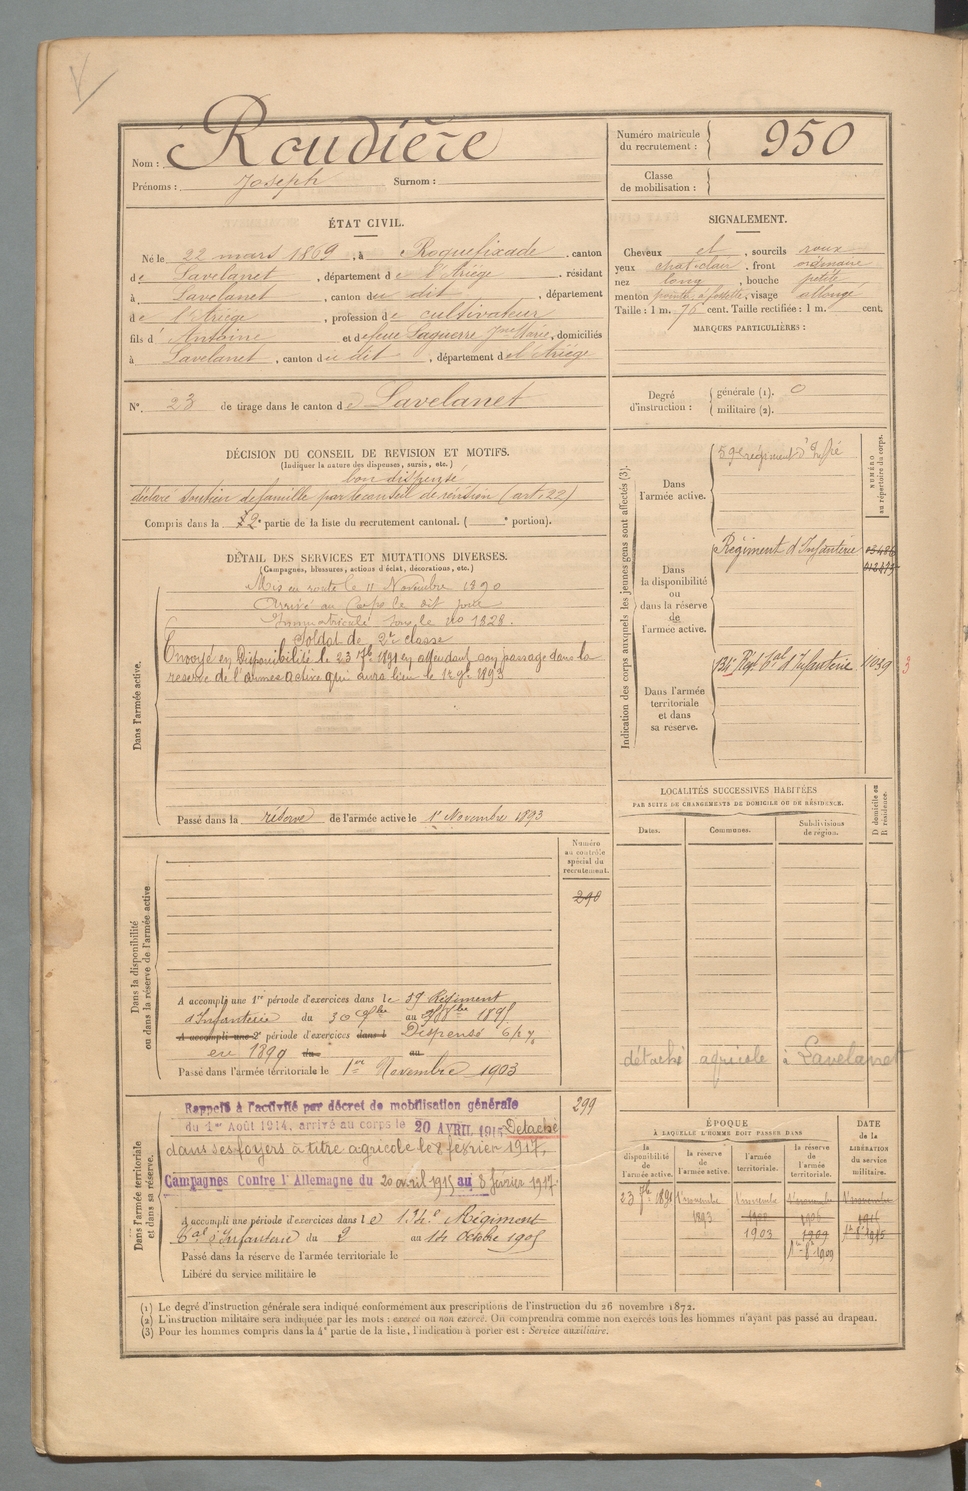 Nom : Roudière
Prénoms : Joseph Surnom :
Numéro matricule du recrutement : 950
Classe de mobilisation :
ÉTAT CIVIL.
Né le 22 mars 1869, à Roquefixade, canton
de Lavelanet, département de l'Ariège, résidant
à Lavelanet, canton du dit, département
de l'Ariège, profession de cultivateur
fils d'Antoine et de feue Laguerre Jne Marie, domiciliés
à Lavelanet, canton du dit, département de l'Ariège
N°. 23 de tirage dans le canton de Lavelanet
SIGNALEMENT.
Cheveux et, sourcils roux
yeux chat. clair, front ordinaire
nez long, bouche petite
menton pointu à fossette, visage allongé
Taille : 1 m. 75 cent. Taille rectifiée : 1 m. cent.
MARQUES PARTICULIÈRES :
Degré d'instruction : générale (1). 0
militaire (2).
DÉCISION DU CONSEIL DE REVISION ET MOTIFS.
(Indiquer la nature des dispenses, sursis, etc.)
bon dispensé
déclaré soutien de famille par le conseil de révision (art. 22)
Compris dans la 2e partie de la liste du recrutement cantonal. ( e portion).
DÉTAIL DES SERVICES ET MUTATIONS DIVERSES.
(Campagnes, blessures, actions d'éclat, décorations, etc.)
Dans l'armée active.
Mis en route le 11 Novembre 1890
Arrivé au Corps le dit jour
Immatriculé sous le no 1328.
Soldat de 2e classe
Envoyé en Disponibilité le 23 7bre 1891 en attendant son passage dans la
réserve de l'armée active qui aura lieu le 1er 9bre 1893
Passé dans la réserve de l'armée active le 1er Novembre 1893
Indication des corps auxquels les jeunes gens sont affectés (3).
NUMÉRO au répertoire du corps.
Dans l'armée active.
59e régiment d'Infrie
Dans la disponibilité ou dans la réserve de l'armée active.
Régiment d'Infanterie
Dans l'armée territoriale et dans sa réserve.
134e Régt Tal d'Infanterie 11039 3
LOCALITÉS SUCCESSIVES HABITÉES
PAR SUITE DE CHANGEMENTS DE DOMICILE OU DE RÉSIDENCE.
Dates. Communes. Subdivisions de région. D domicile ou R résidence.
détaché agricole à Lavelanet
Dans la disponibilité ou dans la réserve de l'armée active
Numéro au contrôle spécial du recrutement.
290
A accompli une 1re période d'exercices dans le 59 Régiment
d'Infanterie du 30 7bre au 27 8bre 1895
A accompli une 2e période d'exercices dans l Dispensé
en 1899 du au
Passé dans l'armée territoriale le 1er Novembre 1903
Dans l'armée territoriale et dans sa réserve.
299
Rappelé à l'activité par décret de mobilisation générale
du 1er Août 1914, arrivé au corps le 20 AVRIL 1915 Détaché
dans ses foyers à titre agricole le 8 février 1917,
Campagnes Contre l'Allemagne du 20 avril 1915 au 8 février 1917.
A accompli une période d'exercices dans le 134e Régiment
Tal d'Infanterie du 2 au 14 Octobre 1905
Passé dans la réserve de l'armée territoriale le
Libéré du service militaire le
ÉPOQUE
À LAQUELLE L'HOMME DOIT PASSER DANS
la disponibilité de l'armée active.
la réserve de l'armée active.
l'armée territoriale.
la réserve de l'armée territoriale.
DATE de la LIBÉRATION du service militaire.
23 7bre 1891
1er novembre 1893
1er novembre 1900 1903
1er novembre 1906 1909
1er 8bre 1909
1er novembre 1915
(1) Le degré d'instruction générale sera indiqué conformément aux prescriptions de l'instruction du 26 novembre 1872.
(2) L'instruction militaire sera indiquée par les mots : exercé ou non exercé. On comprendra comme non exercés tous les hommes n'ayant pas passé au drapeau.
(3) Pour les hommes compris dans la 4e partie de la liste, l'indication à porter est : Service auxiliaire.